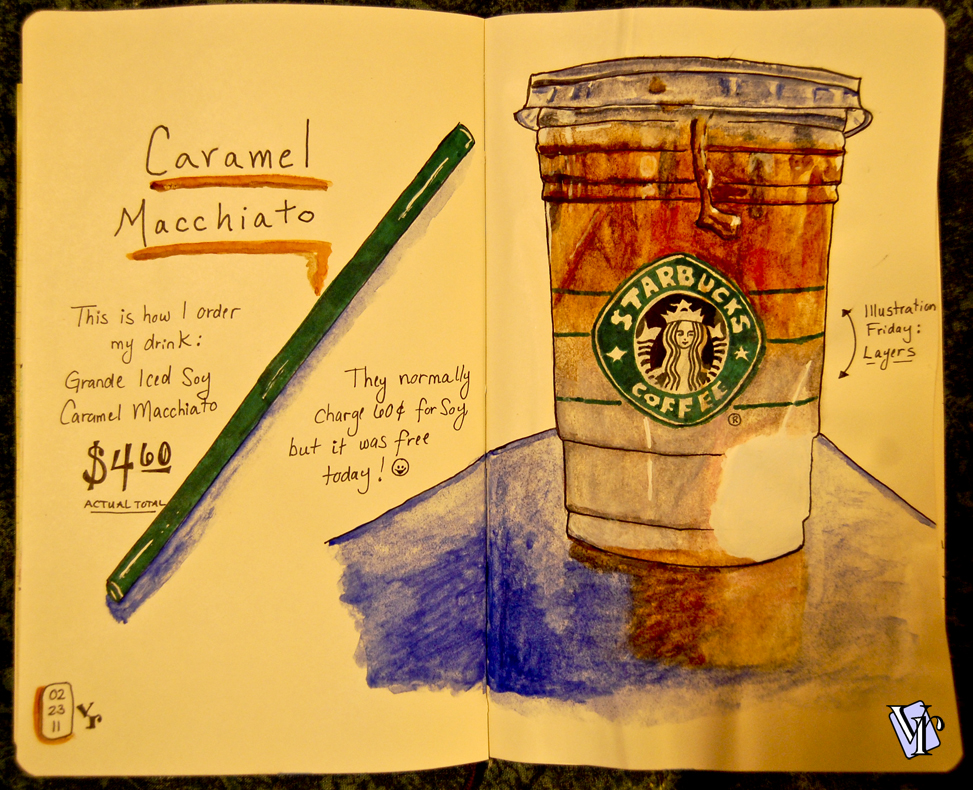 Caramel
Macchiato
This is how I order
my drink:
Grande Iced Soy
Caramel Macchiato
$4.60
ACTUAL TOTAL
They normally
charge 60¢ for Soy
but it was free
today! ☺
02
23
11
Vr
STARBUCKS
COFFEE
®
Illustration
Friday:
Layers
Vr